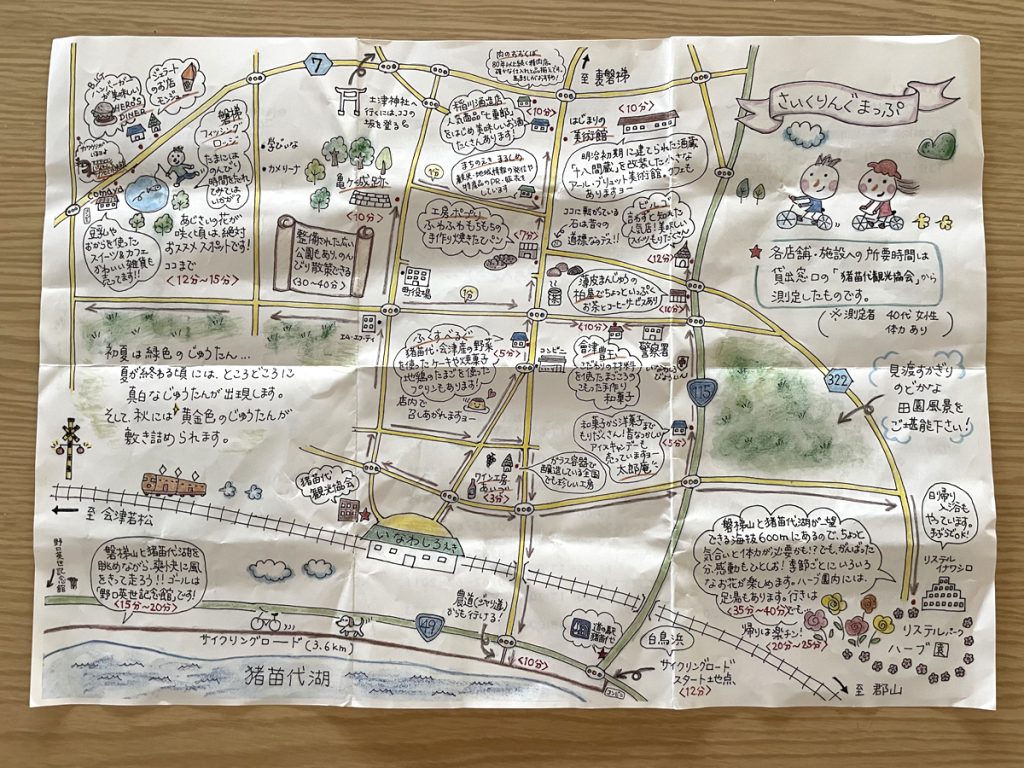 さいくりんぐまっぷ
★各店舗・施設への所要時間は
貸出窓口の「猪苗代観光協会」から
測定したものです。
(※測定者 40代女性
体力あり)
ハンバーガーが
美味しい
HERO'S
DINER
ジェラート
のお店
モンジュ
7
土津神社へ
行くにはココの
坂を登る
肉のおおくぼ
至 裏磐梯
稲川酒造店
人気商品"七重郎"
をはじめ美味しいお酒
たくさんあります!
<10分>
はじまりの
美術館
<10分>
明治初期に建てられた酒蔵
"十八間蔵"を改装した小さな
アール・ブリュット美術館。カフェも
ありますヨー
磐梯
フィッシング
ロッジ
たまには
のんびり
時間を忘れ
てみては
いかが?
学びいな
カメリーナ
亀ヶ城跡
<10分>
まちのえき まるしめ
観光・地域情報の発信や
特産品のPR・販売を
しています
<5分>
1分
豆乳や
おからを使った
スイーツ&カフェ
かわいい雑貨も
売ってます!!
あじさいの花が
咲く頃は絶対
おススメスポットです!
ココまで
<12分~15分>
整備された広い
公園もあり、のん
びり散策できる
<30~40分>
工房ポーリッ
ふわふわもちもちの
手作り天然だパン
<7分>
ココに転がっている
石は昔々の
道標なのデス!!
言わずと知れた
人気店!美味しい
スイーツもりだくさん
<12分>
町役場
1分
薄皮まんじゅうの
柏屋でちょっといっぷく
お茶とコーヒーサービスあり
<10分>
初夏は緑色のじゅうたん…
夏が終わる頃には、ところどころに
真白なじゅうたんが出現します。
そして、秋には黄金色のじゅうたんが
敷き詰められます。
猪苗代・会津産の野菜
を使ったケーキや焼菓子
地鶏のたまごを使った
プリンもあります!
店内で
召しあがれますヨー
<5分>
コンビニ
会津の
蔵王
こだわりの正原料
を使ったまごころ
こもった手作り
和菓子
<10分>
警察署
115
322
見渡すかぎり
のどかな
田園風景を
ご堪能下さい!
和菓子から洋菓子まで
もりだくさん!昔なつかしい
アイスキャンデーも
売っていますヨー
太郎庵
<5分>
ガラス容器で
醸造している全国
でも珍しい工房
ワイン工房
あいづ
<3分>
猪苗代
観光協会
いなわしろえき
至 会津若松
野口英世記念館
磐梯山と猪苗代湖を
眺めながら、爽快に風
をきって走ろう!!ゴールは
「野口英世記念館」です!
<15分~20分>
サイクリングロード(3.6km)
猪苗代湖
49
農道(ジャリ道)
からも行ける!
<10分>
道の駅
猪苗代
白鳥浜
サイクリングロード
スタート地点
<12分>
コンビニ
磐梯山と猪苗代湖が一望
できる海抜600mにあるので、ちょっと
気合いと体力が必要かも!?でも、がんばった
分、感動もひとしお!季節ごとにいろいろ
なお花が楽しめます。ハーブ園内には、
足湯もあります。行きは
<35分~40分>でも…
帰りは楽チン!
<20分~25分>
日帰り
入浴も
やっています。
リステル
イナワシロ
リステルパーク
ハーブ園
至 郡山